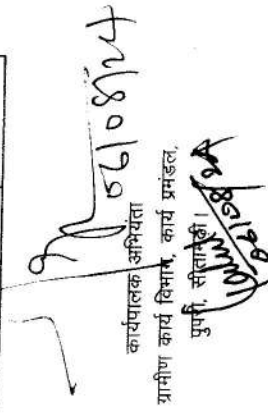 06/08/24
कार्यपालक अभियंता
ग्रामीण कार्य विभाग, कार्य प्रमंडल,
पुपरी, सीतामढ़ी।
06/08/24